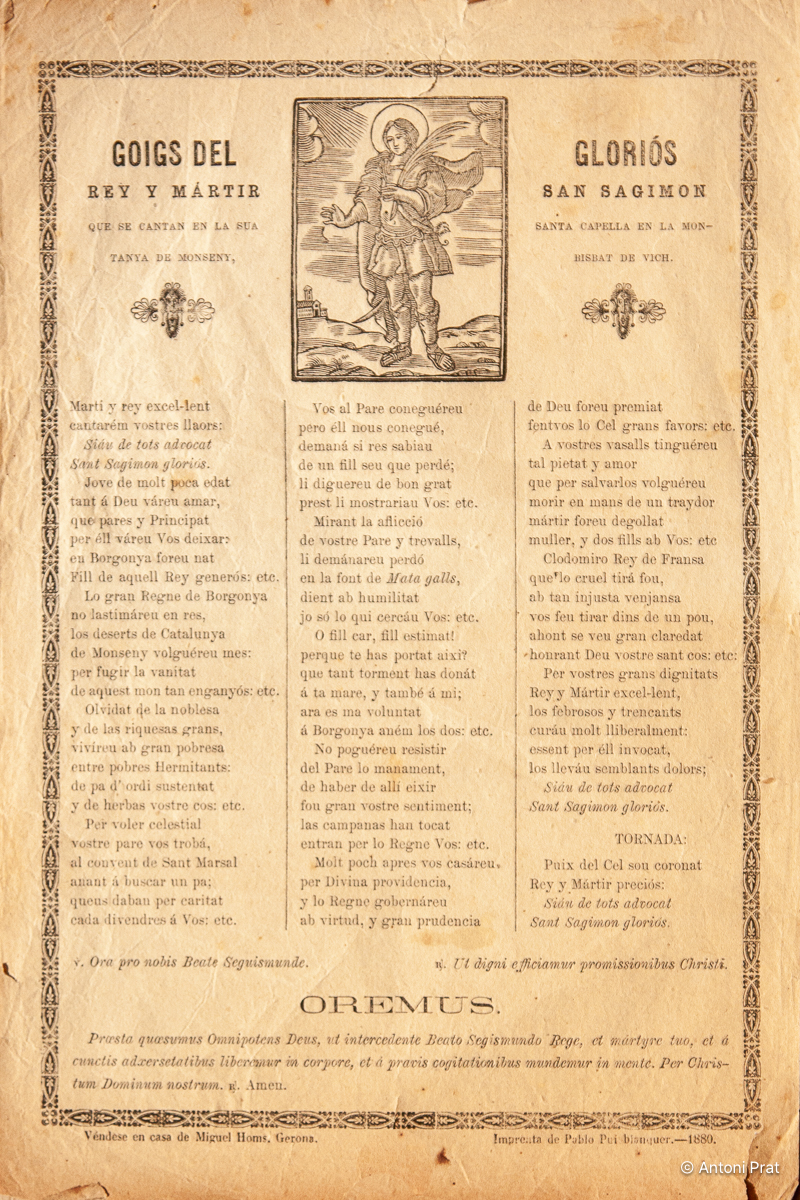 GOIGS DEL
REY Y MÁRTIR
QUE SE CANTAN EN LA SUA
TANYA DE MONSENY,
GLORIÓS
SAN SAGIMON
SANTA CAPELLA EN LA MON-
BISBAT DE VICH.
Martí y rey excel-lent
cantarém vostres llaors:
Siáu de tots advocat
Sant Sagimon gloriós.
Jove de molt poca edat
tant á Deu váreu amar,
que pares y Principat
per éll váreu Vos deixar:
en Borgonya foreu nat
Fill de aquell Rey generós: etc.
Lo gran Regne de Borgonya
no lastimáreu en res,
los deserts de Catalunya
de Monseny volguéreu mes:
per fugir la vanitat
de aquest mon tan enganyós: etc.
Olvidat de la noblesa
y de las riquesas grans,
vivireu ab gran pobresa
entre pobres Hermitants:
de pa d' ordi sustentat
y de herbas vostre cos: etc.
Per voler celestial
vostre pare vos trobá,
al convent de Sant Marsal
anant á buscar un pa;
queus daban per caritat
cada divendres á Vos: etc.
Vos al Pare coneguéreu
pero éll nous conegué,
demaná si res sabiau
de un fill seu que perdé;
li diguereu de bon grat
prest li mostrariau Vos: etc.
Mirant la aflicció
de vostre Pare y trevalls,
li demánareu perdó
en la font de Mata galls,
dient ab humilitat
jo só lo qui cercáu Vos: etc.
O fill car, fill estimat!
perque te has portat aixi?
que tant torment has donát
á ta mare, y també á mi;
ara es ma voluntat
á Borgonya aném los dos: etc.
No poguéreu resistir
del Pare lo manament,
de haber de allí eixir
fou gran vostre sentiment;
las campanas han tocat
entran per lo Regne Vos: etc.
Molt poch apres vos casáreu,
per Divina providencia,
y lo Regne gobernáreu
ab virtud, y gran prudencia
de Deu foreu premiat
fentvos lo Cel grans favors: etc.
A vostres vasalls tinguéreu
tal pietat y amor
que per salvarlos volguéreu
morir en mans de un traydor
mártir foreu degollat
muller, y dos fills ab Vos: etc
Clodomiro Rey de Fransa
que'lo cruel tirá fou,
ab tan injusta venjansa
vos feu tirar dins de un pou,
ahont se veu gran claredat
honrant Deu vostre sant cos: etc:
Per vostres grans dignitats
Rey y Mártir excel-lent,
los febrosos y trencats
curáu molt lliberalment:
essent per éll invocat,
los lleváu semblants dolors;
Siáu de tots advocat
Sant Sagimon gloriós.
TORNADA:
Puix del Cel sou coronat
Rey y Mártir preciós:
Siáu de tots advocat
Sant Sagimon gloriós.
℣. Ora pro nobis Beate Seguismunde.
℟. Ut digni efficiamur promissionibus Christi.
OREMUS.
Præsta quæsumus Omnipotens Deus, ut intercedente Beato Segismundo Rege, et mártyre tuo, et á
cunctis adversetatibus liberemur in corpore, et á pravis cogitationibus mundemur in mente. Per Chris-
tum Dominum nostrum. ℟. Amen.
Véndese en casa de Miguel Homs, Gerona.
Imprenta de Pablo Puigblanquer.—1880.
© Antoni Prat